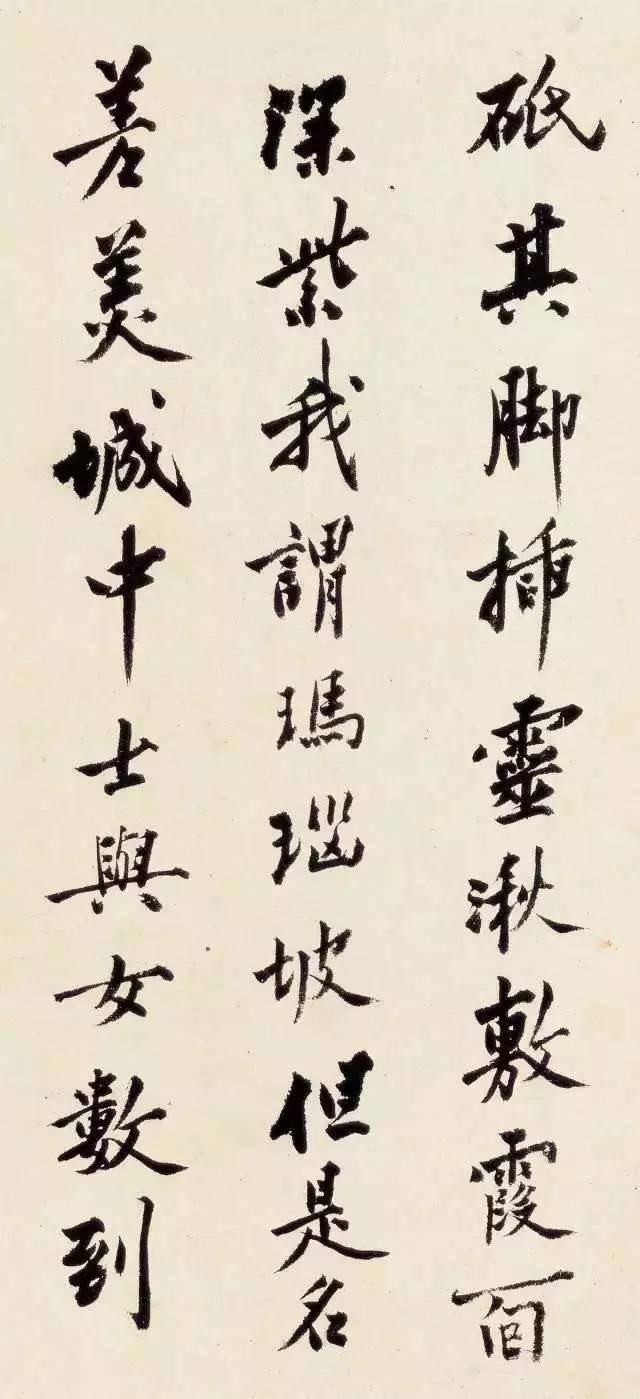 砥其脚插靈湫敷霞面
深紫我謂瑪瑙坡但是名
差美城中士與女數到